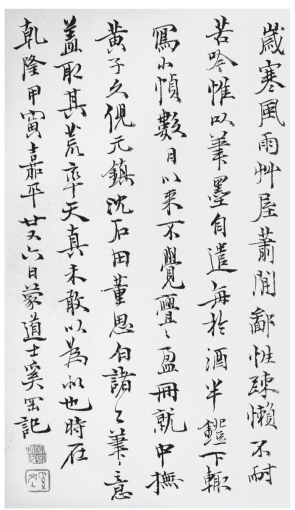 歲寒風雨艸屋蕭閒鄙性疎懶不耐
苦吟惟以筆墨自遣每於酒半鐙下輒
寫小幀數日以來不覺亹〻盈冊就中撫
黃子久倪元鎮沈石田董思白諸〻筆〻意
葢取其荒率天真未敢以為似也時在
乾隆甲寅嘉平廿又六日蒙道士奚岡記